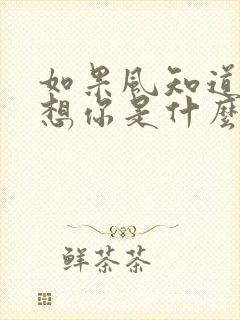 如果風知道
想你是什麼
鮮茶茶